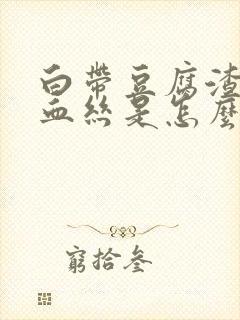 白帶豆腐渣
血絲是怎麼
窮拾叁